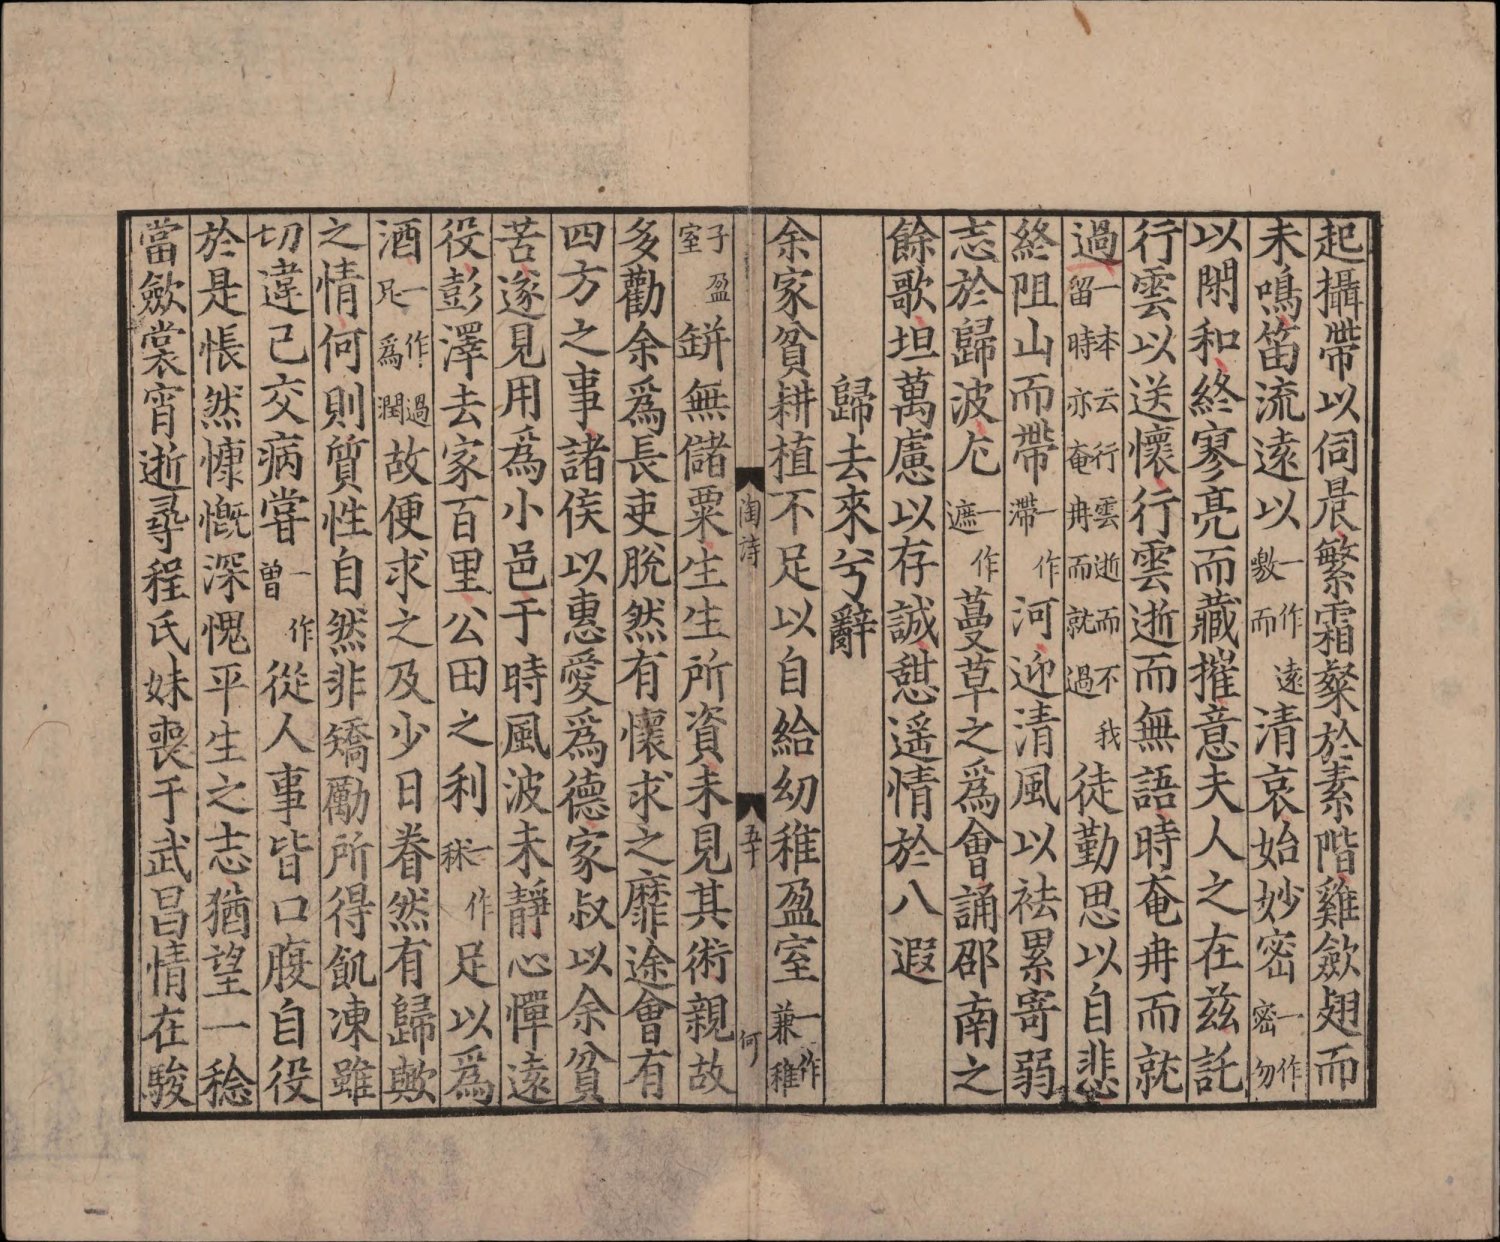 起攝帶以伺晨繁霜粲於素階雞斂翅而
未鳴笛流遠以一作遠噭而清哀始妙密一作密勿
以閑和終寥亮而藏摧意夫人之在兹託
行雲以送懷行雲逝而無語時奄冉而就
過一本云行雲逝而不我留時亦奄冉而就過徒勤思以自悲
終阻山而帶一作滯河迎清風以袪累寄弱
志於歸波尤一作遮蔓草之爲會誦邵南之
餘歌坦萬慮以存誠憇遥情於八遐
歸去來兮辭
余家貧耕植不足以自給幼稚盈室一作兼稚
陶詩 五十 何
子盈室缾無儲粟生生所資未見其術親故
多勸余爲長吏脫然有懷求之靡途會有
四方之事諸侯以惠愛爲德家叔以余貧
苦遂見用爲小邑于時風波未靜心憚遠
役彭澤去家百里公田之利一作秫足以爲
酒一作過足爲潤故便求之及少日眷然有歸歟
之情何則質性自然非矯勵所得飢凍雖
切違己交病嘗一作曽從人事皆口腹自役
於是悵然慷慨深愧平生之志猶望一稔
當斂裳宵逝尋程氏妹喪于武昌情在駿